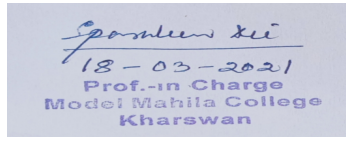 18-03-2021
Prof.-in Charge
Model Mahila College
Kharswan